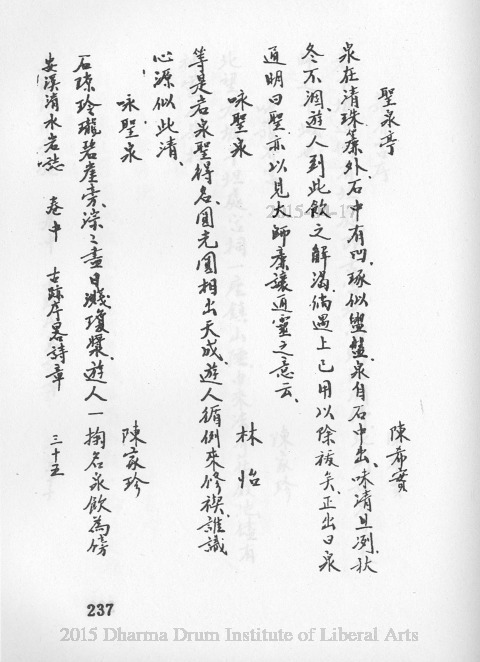 聖泉亭
陳希實
泉在清珠簾外、石中有凹、琢似盥盤、泉自石中出、味清且冽、秋
冬不涸、遊人到此飲之解渴、倘遇上巳用以除祓矣、正出曰泉
通明曰聖、亦以見大師秉讓通靈之意云、
咏聖泉
林怡
等是岩泉聖得名、圓光圓相出天成、遊人循例來修禊、誰識
心源似此清、
咏聖泉
陳家珍
石琼玲瓏碧崖旁、淙々盡日濺瓊漿、遊人一掬名泉飲為傍
安溪清水岩誌 卷中 古跡序畧詩章 三十五
237
2015 Dharma Drum Institute of Liberal Arts